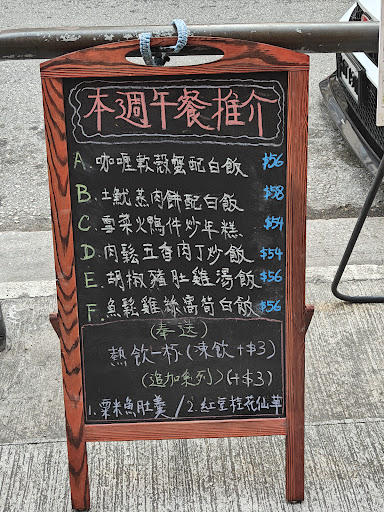 本週午餐推介
A. 咖喱軟殼蟹配白飯 $56
B. 土魷蒸肉餅配白飯 $58
C. 雪菜火鴨件炒年糕 $54
D. 肉鬆五香肉丁炒飯 $54
E. 胡椒豬肚雞湯飯 $56
F. 魚鬆雞絲窩筍白飯 $56
(奉送)
熱飲一杯(凍飲+$3)
(追加系列)(+$3)
1. 粟米魚肚羹 / 2. 紅豆桂花仙草